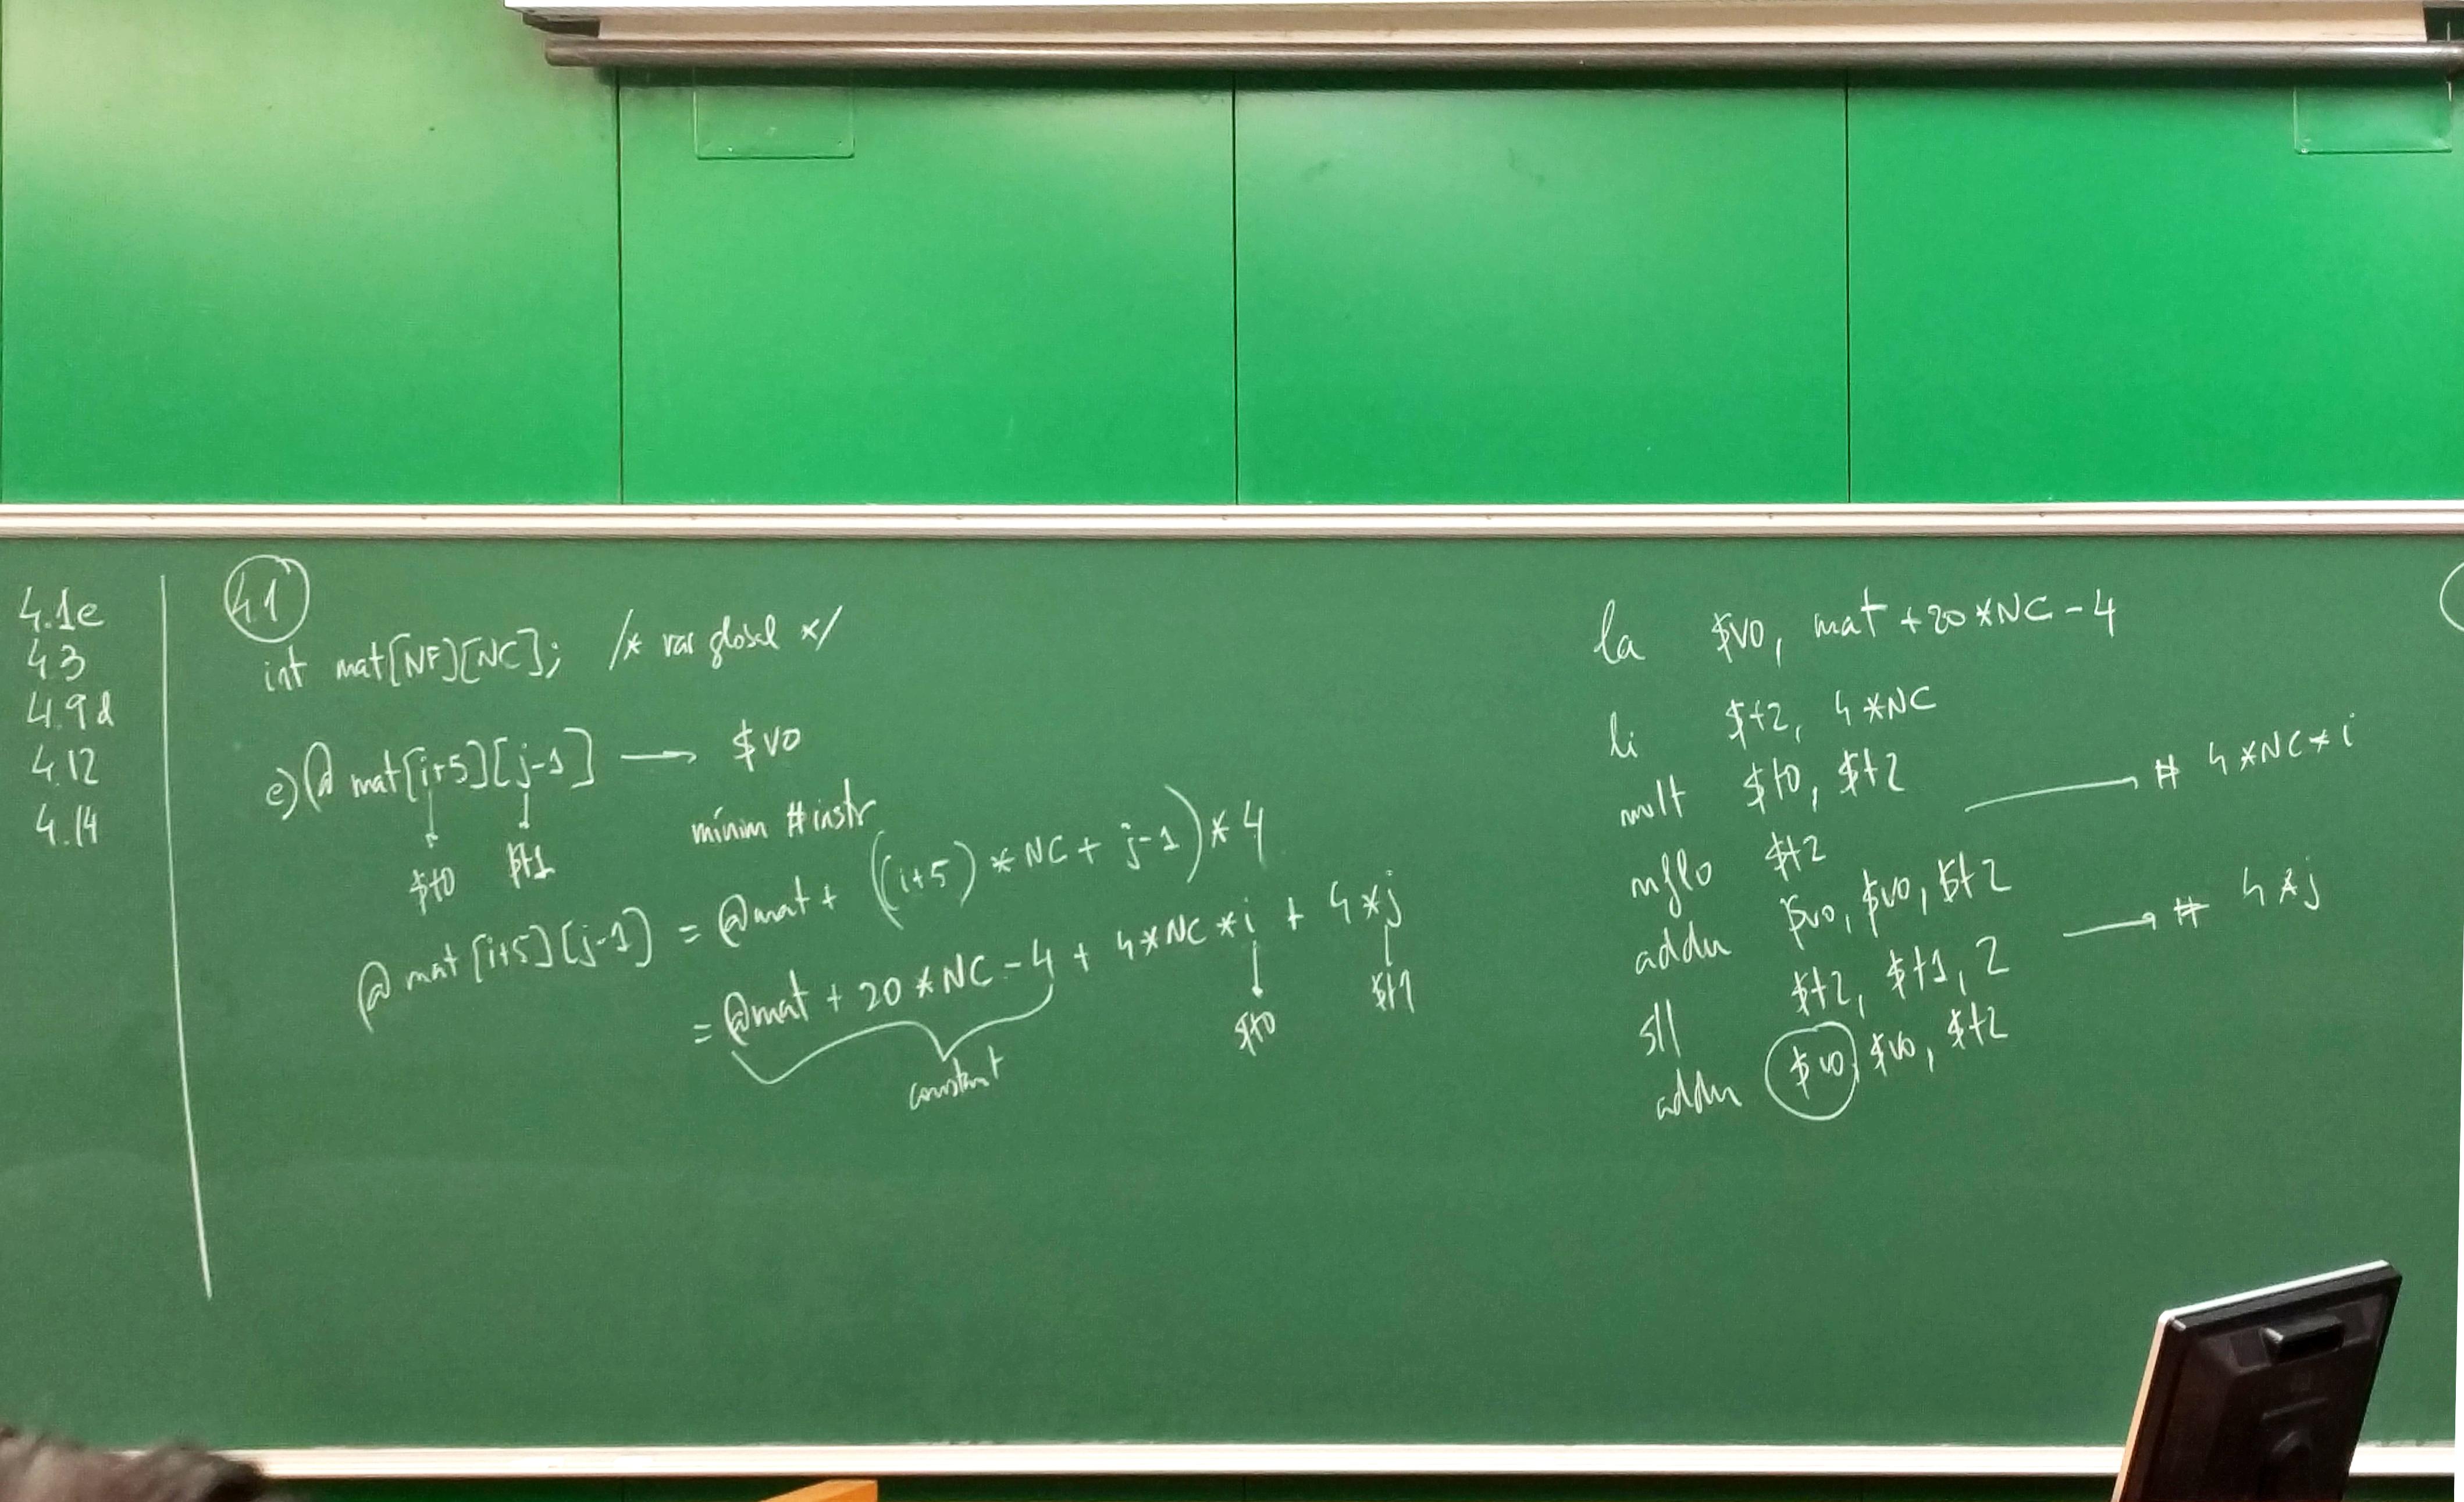 4.1e
4.3
4.9d
4.12
4.14
4.1
int mat[NF][NC]; /* var global */
e) @ mat[i+5][j-1] → $v0
$t0 $t1
mínim #instr
@ mat [i+5][j-1] = @mat + ((i+5) * NC + j-1) * 4
= @mat + 20 * NC - 4 + 4*NC * i + 4*j
constant
$t0 $t1
la $v0, mat + 20*NC - 4
li $t2, 4*NC
mult $t0, $t2
mflo $t2 → # 4*NC*i
addu $v0, $v0, $t2
sll $t2, $t1, 2 → # 4*j
addu $v0, $v0, $t2